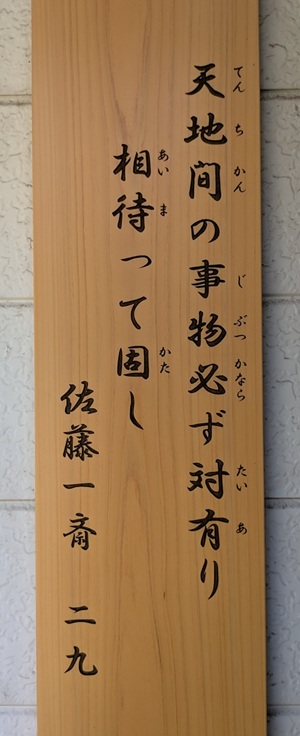 天地間の事物必ず対有り
てんちかん じぶつかなら たいあ
相待って固し
あいま かた
佐藤一斎 二九